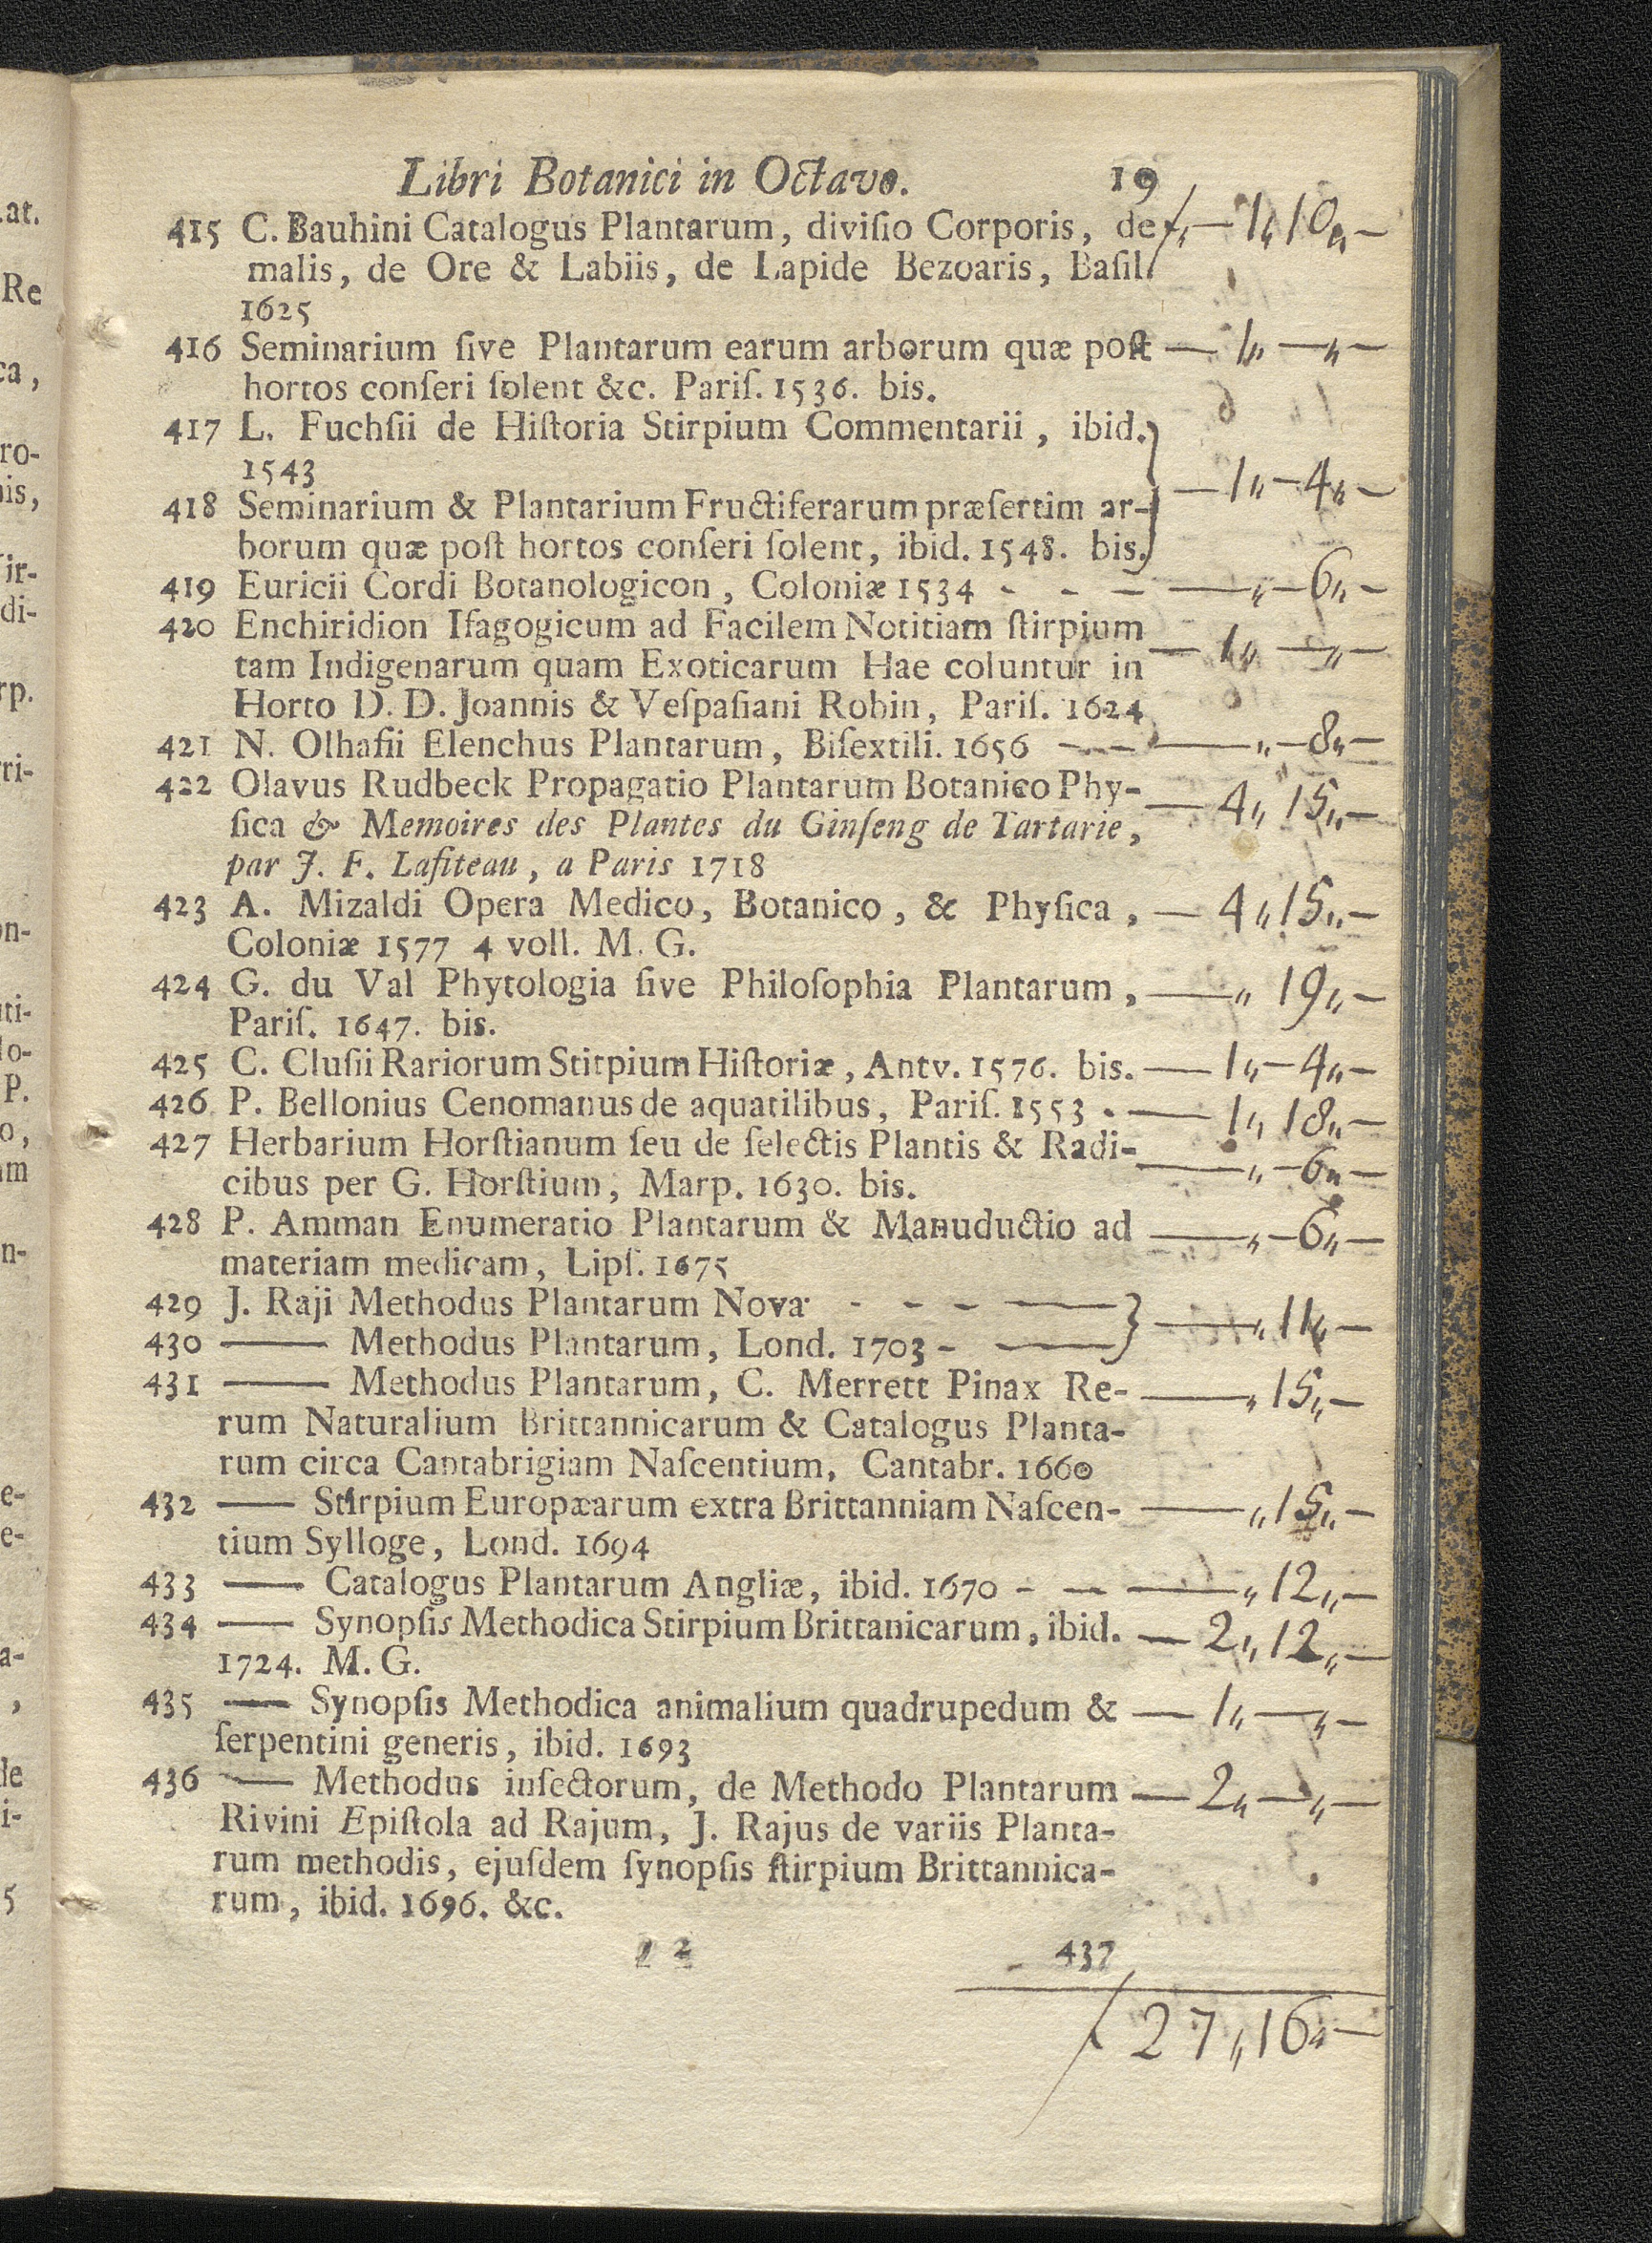 Libri Botanici in Octavo. 19
415 C. Bauhini Catalogus Plantarum, diviſio Corporis, de ƒ„— 1„10„—
malis, de Ore & Labiis, de Lapide Bezoaris, Baſil.
1625
416 Seminarium ſive Plantarum earum arborum quæ poſt — 1„—„—
hortos conſeri ſolent &c. Pariſ. 1536. bis.
417 L. Fuchſii de Hiſtoria Stirpium Commentarii, ibid.
1543
— 1„—4„—
418 Seminarium & Plantarium Fructiferarum præſertim ar-
borum quæ poſt hortos conſeri ſolent, ibid. 1548. bis.
419 Euricii Cordi Botanologicon, Coloniæ 1534 - - — —„—6„—
420 Enchiridion Iſagogicum ad Facilem Notitiam ſtirpium
tam Indigenarum quam Exoticarum Hae coluntur in — 1„—„—
Horto D. D. Joannis & Veſpaſiani Robin, Pariſ. 1624
421 N. Olhafii Elenchus Plantarum, Biſextili. 1656 —„—8„—
422 Olavus Rudbeck Propagatio Plantarum Botanico Phy- — 4„15„—
ſica & Memoires des Plantes du Ginſeng de Tartarie,
par J. F. Lafiteau, a Paris 1718
423 A. Mizaldi Opera Medico, Botanico, & Phyſica, — 4„15„—
Coloniæ 1577 4 voll. M. G.
424 G. du Val Phytologia ſive Philoſophia Plantarum, —„19„—
Pariſ. 1647. bis.
425 C. Cluſii Rariorum Stirpium Hiſtoriæ, Antv. 1576. bis. — 1„—4„—
426 P. Bellonius Cenomanus de aquatilibus, Pariſ. 1553 . — 1„18„—
427 Herbarium Horſtianum ſeu de ſelectis Plantis & Radi- —„—6„—
cibus per G. Horſtium, Marp. 1630. bis.
428 P. Amman Enumeratio Plantarum & Manuductio ad —„—6„—
materiam medicam, Lipſ. 1675
429 J. Raji Methodus Plantarum Nova - - - — } —„11„—
430 —— Methodus Plantarum, Lond. 1703 - —
431 —— Methodus Plantarum, C. Merrett Pinax Re- —„15„—
rum Naturalium Brittannicarum & Catalogus Planta-
rum circa Cantabrigiam Naſcentium, Cantabr. 1660
432 —— Stirpium Europæarum extra Brittanniam Naſcen- —„15„—
tium Sylloge, Lond. 1694
433 —— Catalogus Plantarum Angliæ, ibid. 1670 - — —„12„—
434 —— Synopſis Methodica Stirpium Brittanicarum, ibid. — 2„12„—
1724. M. G.
435 —— Synopſis Methodica animalium quadrupedum & — 1„—„—
ſerpentini generis, ibid. 1693
436 —— Methodus inſectorum, de Methodo Plantarum — 2„—„—
Rivini Epiſtola ad Rajum, J. Rajus de variis Planta-
rum methodis, ejuſdem ſynopſis ſtirpium Brittannica-
rum, ibid. 1696. &c.
437
ƒ 27„16„—
at.
Re
ca,
ro-
is,
ir-
di-
rp.
ri-
on-
ti-
lo-
P.
o,
um
n-
e-
e-
a-
,
de
i-
5